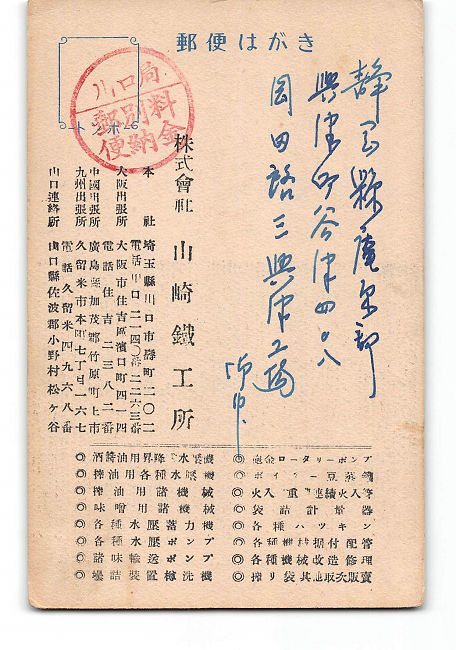 郵便はがき
川口局
料金別納郵便
静岡縣庵原郡
興津町谷津四〇八
岡田詒三興津工場
御中
株式會社 山崎鐵工所
本社 埼玉縣川口市壽町二〇二
電話川口二一四〇番二二六三番
大阪出張所 大阪市住吉區濱口町四一四
電話住吉二三八二番
中國出張所 廣島縣加茂郡竹原町上市
九州出張所 久留米市本町七丁目一六七
電話久留米四九六八番
山口連絡所 山口縣佐波郡小野村松ヶ谷
◎酒醬油用昇降水壓機
◎搾油用各種水壓機
◎搾油用諸機械
◎味噌用諸機械
◎各種水壓蓄力機
◎各種水壓ポンプ
◎諸味輸送ポンプ
◎壜詰裝置樽洗機
◎砲金ロータリーポンプ
◎ボイラー豆蒸罐
◎火入二重連續火入等
◎袋詰計量器
◎各種パツキン
◎各種機械据付配管
◎各種機械改造修理
◎搾り袋其他取次販賣